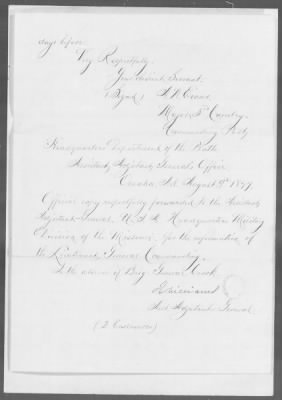 days before.
Very Respectfully
Your obedient Servant
(Signed) A. W. Evans
Major 3rd Cavalry
Commanding Post
Headquarters Department of the Platte
Assistant Adjutant General's Office
Omaha, Neb. August 9th 1877
Official copy respectfully forwarded to the Assistant
Adjutant General, U.S.A. Headquarters Military
Division of the Missouri, for the information of
the Lieutenant General Commanding.
In the absence of Brig. General Crook
Asst Adjutant General
(2 Enclosures)